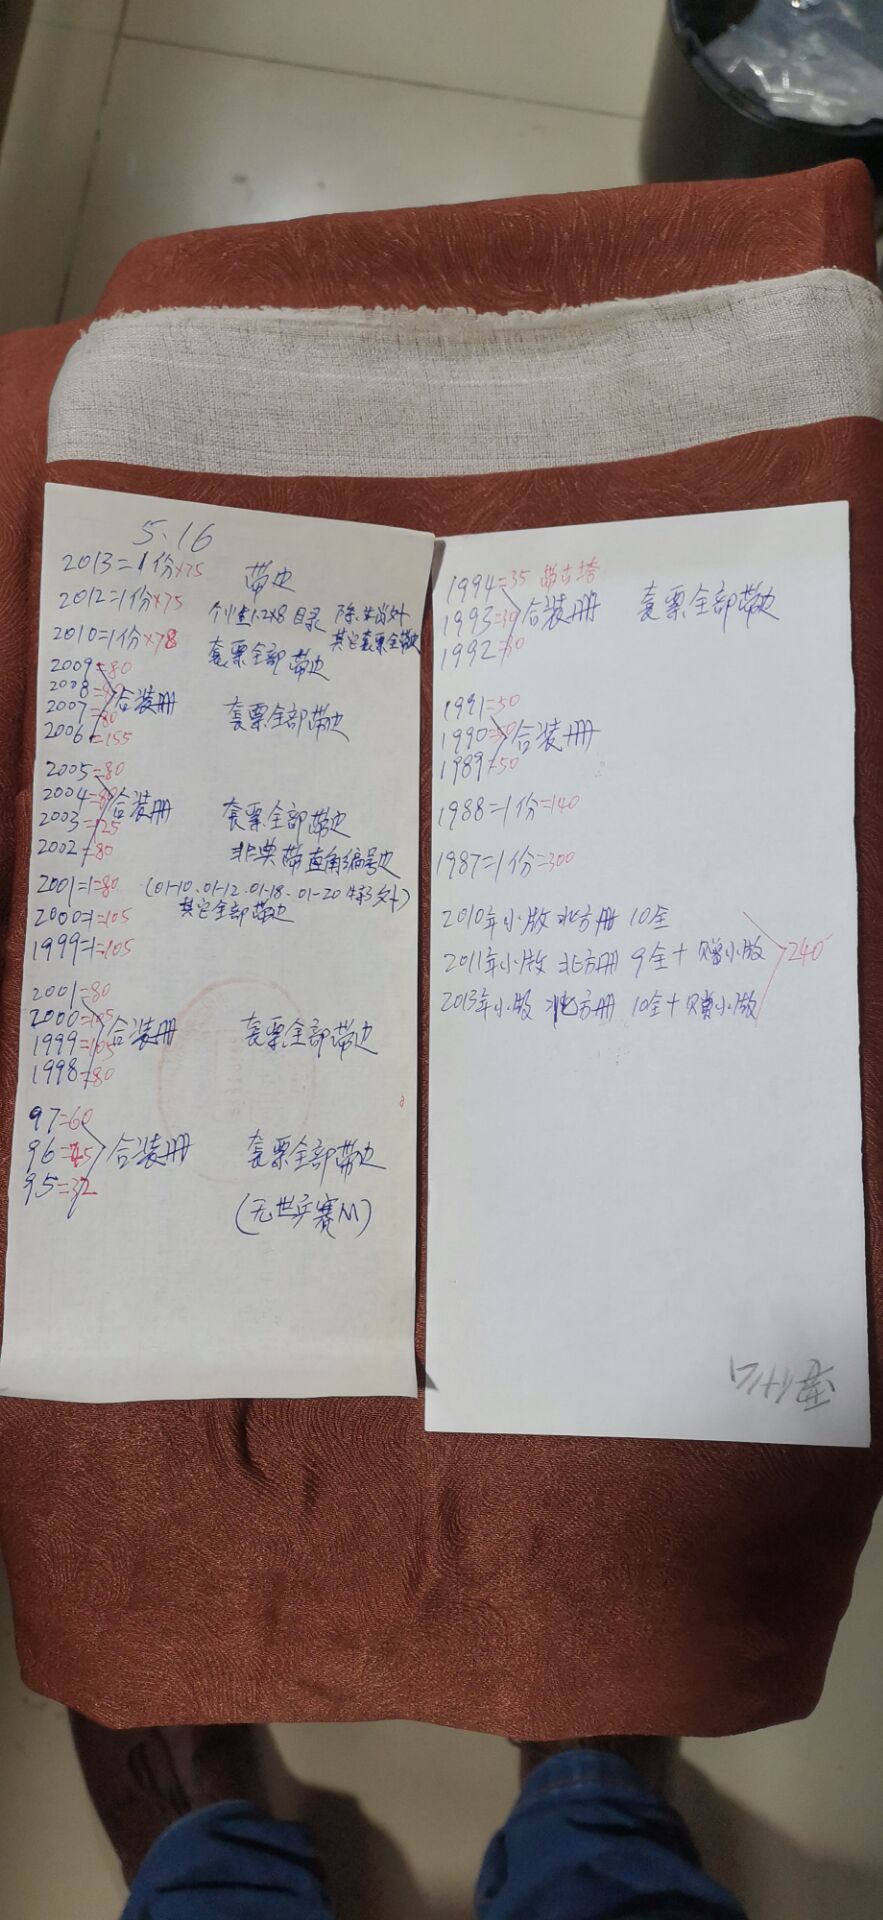 5.16
2013=1份×75 带边
2012=1份×75 目录 除 外
2010=1份×78 其它套票全带边
2009=80 套票全部带边
2008=
2007=80 合装册 套票全部带边
2006=155
2005=80
2004=80 合装册 套票全部带边
2003=125
2002=80 非典带直角编号边
2001=1=80 (01-10、01-12、01-18、01-20 外)
2000=1=105 其它全部带边
1999=1=105
2001=80
2000=105 合装册 套票全部带边
1999=105
1998=80
97=60
96=45 合装册 套票全部带边
95=32
(无世乒赛M)
1994=35 带古塔
1993=30 合装册 套票全部带边
1992=30
1991=50
1990=50 合装册
1989=50
1988=1份=140
1987=1份=300
2010年小版 北方册 10全
2011年小版 北方册 9全+赠小版 240
2013年小版 北方册 10全+赠小版